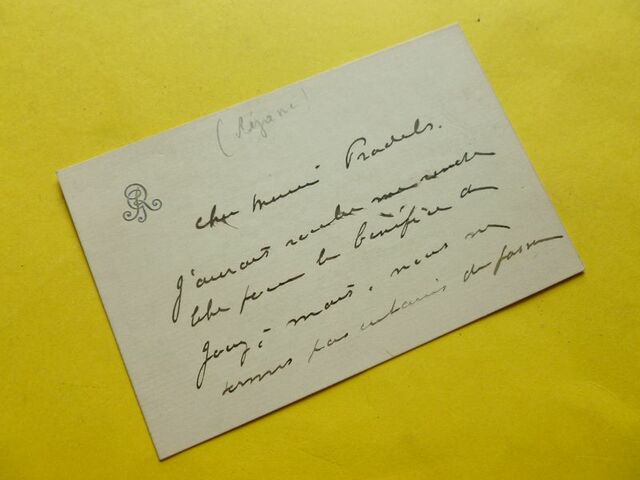 (Réjane)
Cher Monsieur Pradels.
J'aurais voulu me rendre
libre pour le bénéfice de
Gouzé mais, nous ne
sommes pas certains de